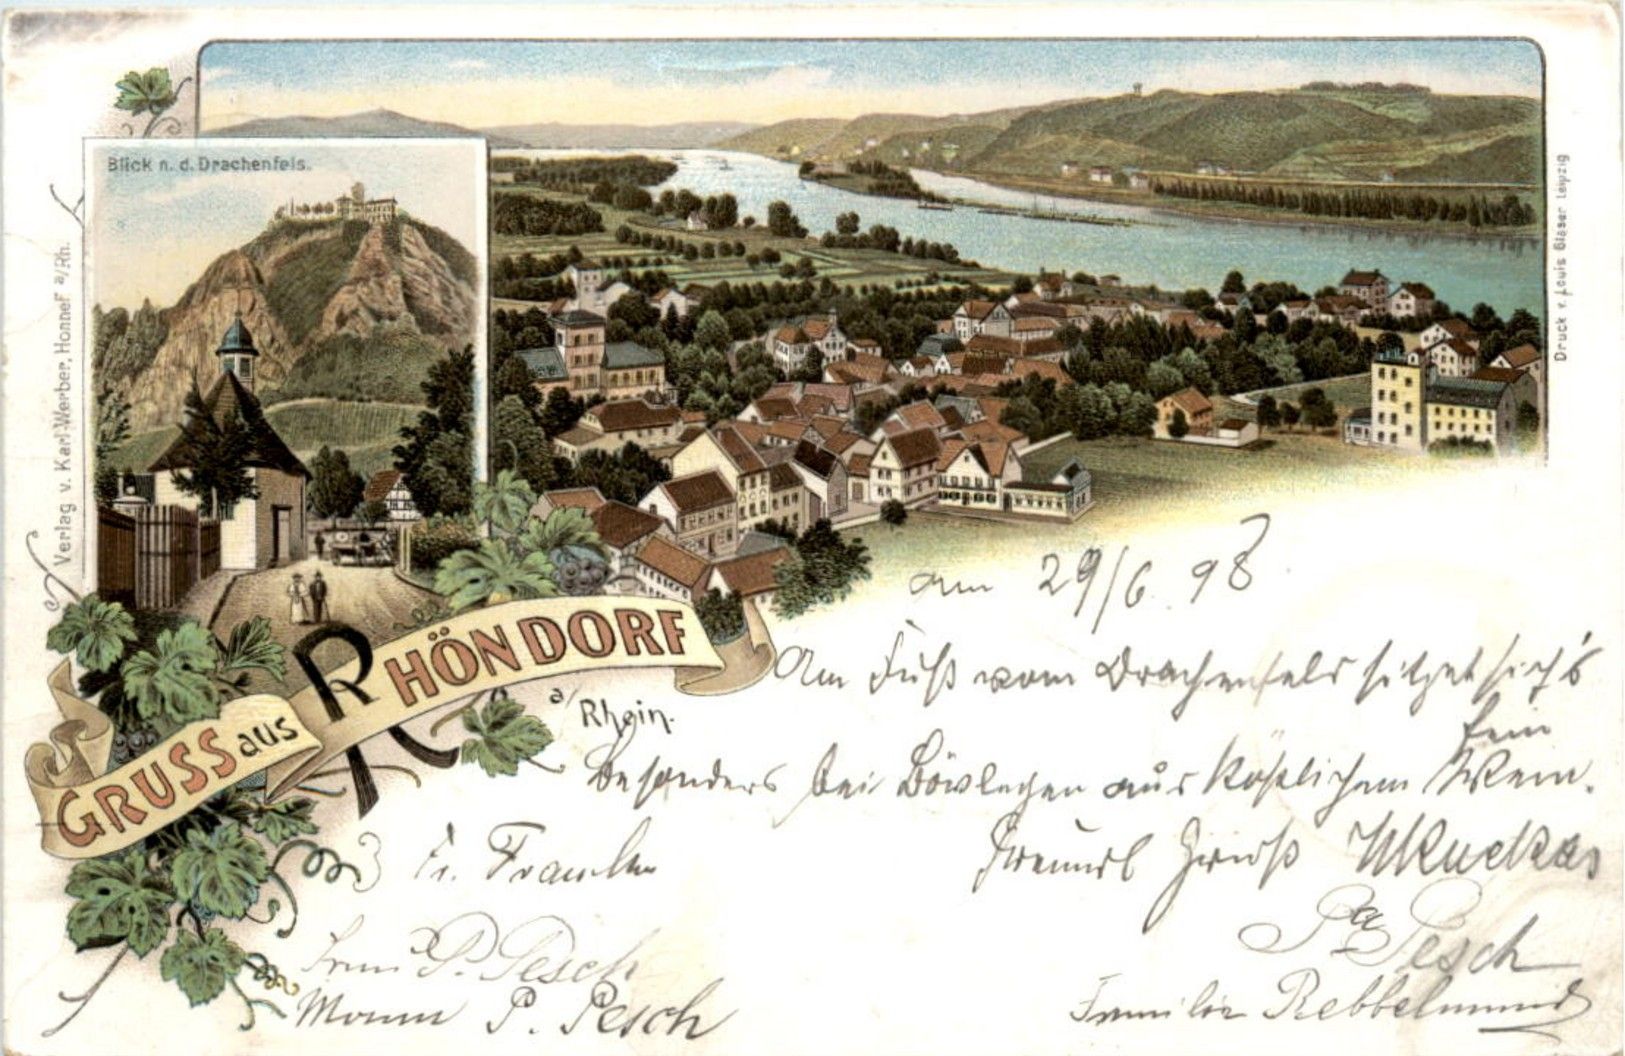 Blick n. d. Drachenfels.
Verlag v. Karl Werber, Honnef a/Rh.
Druck v. Louis Glaser Leipzig
GRUSS aus RHÖNDORF
a/Rhein.
am 29/6. 98
Am Fuß vom Drachenfels sitzet sich's
fein
besonders bei Böwlegen aus köstlichem Wein.
Freundl Gruß
Fr.
Pa Pesch
Frau P. Pesch
P. Pesch
Familie Rebbelmund